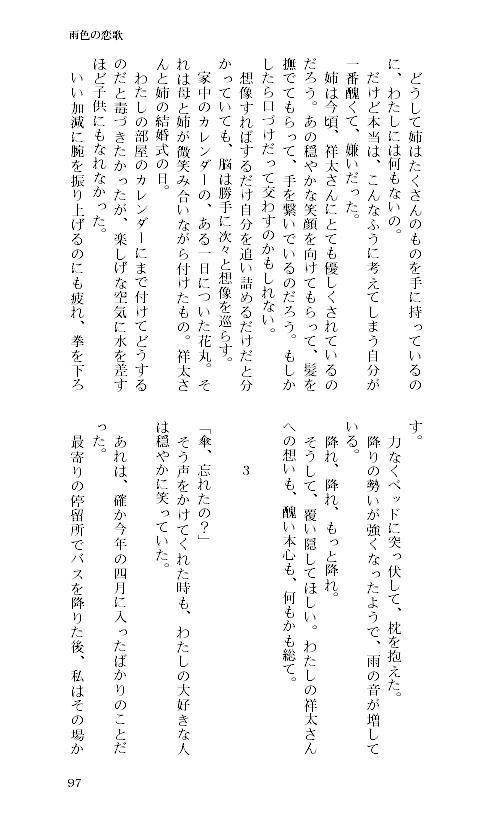 雨色の恋歌
どうして姉はたくさんのものを手に持っているの
に、わたしには何もないの。
だけど本当は、こんなふうに考えてしまう自分が
一番醜くて、嫌いだった。
姉は今頃、祥太さんにとても優しくされているの
だろう。あの穏やかな笑顔を向けてもらって、髪を
撫でてもらって、手を繋いでいるのだろう。もしか
したら口づけだって交わすのかもしれない。
想像すればするだけ自分を追い詰めるだけだと分
かっていても、脳は勝手に次々と想像を巡らす。
家中のカレンダーの、ある一日についた花丸。そ
れは母と姉が微笑み合いながら付けたもの。祥太さ
んと姉の結婚式の日。
わたしの部屋のカレンダーにまで付けてどうする
のだと毒づきたかったが、楽しげな空気に水を差す
ほど子供にもなれなかった。
いい加減に腕を振り上げるのにも疲れ、拳を下ろ
す。
力なくベッドに突っ伏して、枕を抱えた。
降りの勢いが強くなったようで、雨の音が増して
いる。
降れ、降れ、もっと降れ。
そうして、覆い隠してほしい。わたしの祥太さん
への想いも、醜い本心も、何もかも総て。
3
「傘、忘れたの？」
そう声をかけてくれた時も、わたしの大好きな人
は穏やかに笑っていた。
あれは、確か今年の四月に入ったばかりのことだ
った。
最寄りの停留所でバスを降りた後、私はその場か
97